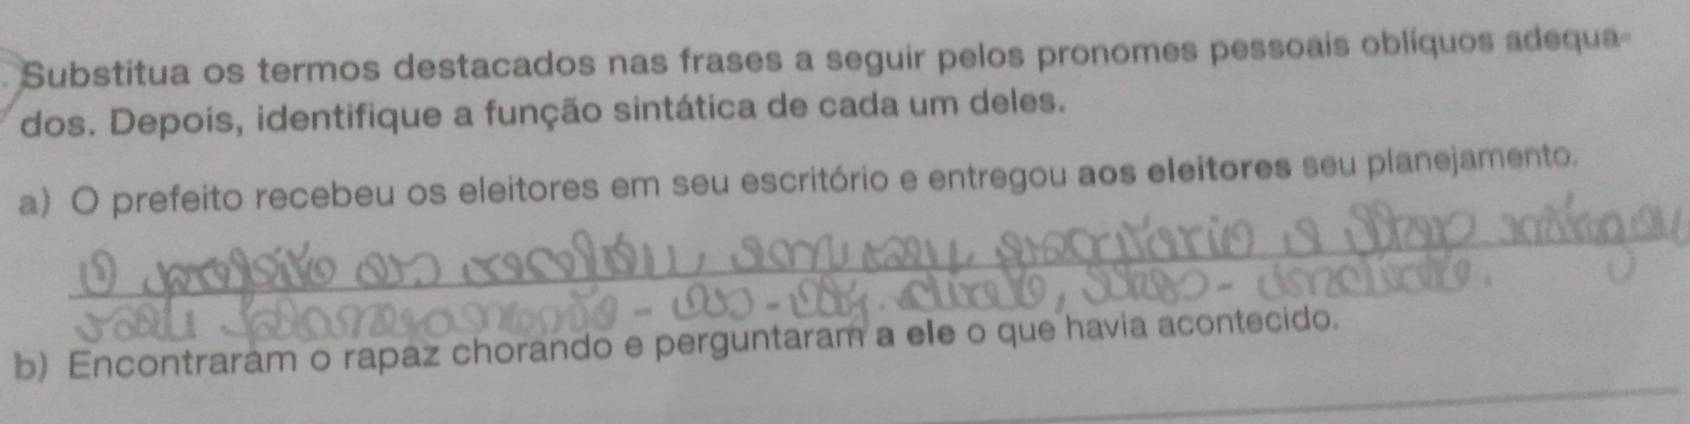 Substitua os termos destacados nas frases a seguir pelos pronomes pessoais oblíquos adequa-
dos. Depois, identifique a função sintática de cada um deles.
a) O prefeito recebeu os eleitores em seu escritório e entregou aos eleitores seu planejamento.
O prefeito os recebeu, em seu escritório e lhes entregou
seu planejamento - os - obj. direto, lhes - indireto.
b) Encontraram o rapaz chorando e perguntaram a ele o que havia acontecido.